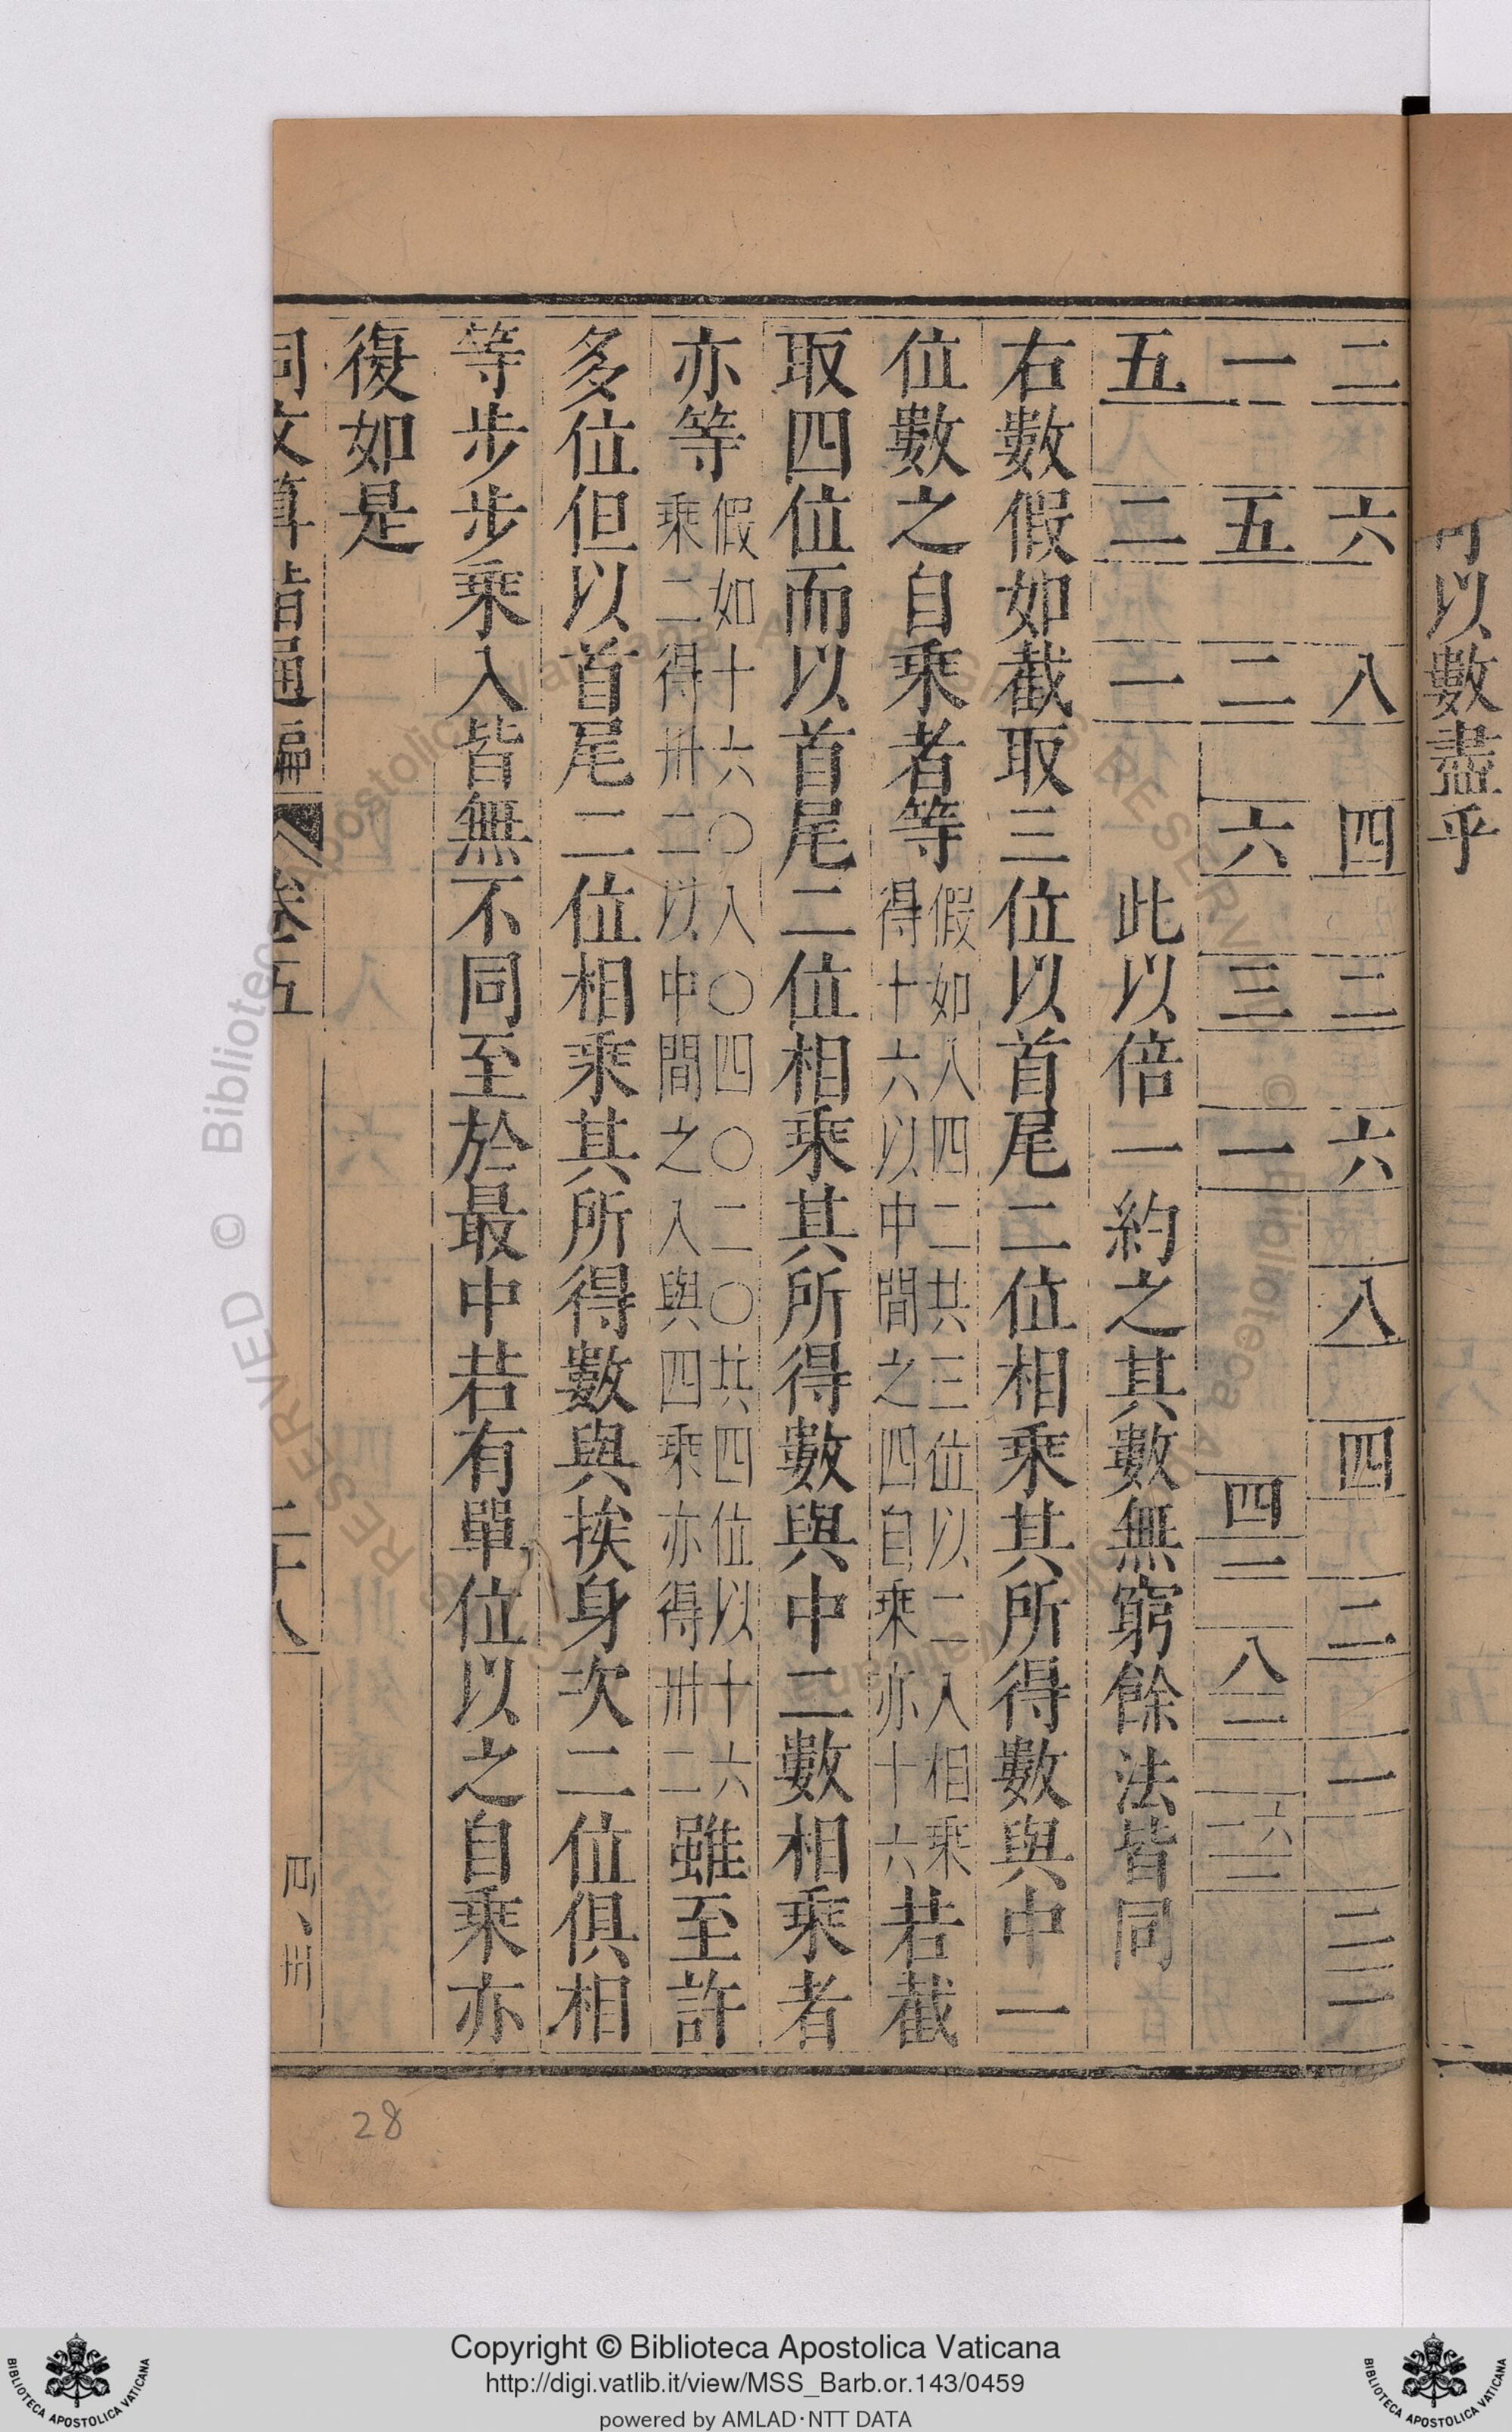 以數盡乎
二 六 八 四 二 六 八 四 二 一
一 五 二 六 三 一
五 二 一 此以倍二約之其數無窮餘法皆同
右數假如截取三位以首尾二位相乘其所得數與中一
位數之自乘者等假如八四二共三位以二八相乘得十六以中間之四自乘亦十六若截
取四位而以首尾二位相乘其所得數與中二數相乘者
亦等假如十六〇八〇四〇二〇共四位以十六乘二得卅二以中間之八與四乘亦得卅二雖至許
多位但以首尾二位相乘其所得數與挨身次二位俱相
等步步乘入皆無不同至於最中若有單位以之自乘亦
復如是
同文算指通編 卷五 二十八
28
© Biblioteca Apostolica Vaticana ALL RIGHTS RESERVED
Copyright © Biblioteca Apostolica Vaticana
http://digi.vatlib.it/view/MSS_Barb.or.143/0459
powered by AMLAD·NTT DATA
BIBLIOTECA APOSTOLICA VATICANA
BIBLIOTECA APOSTOLICA VATICANA